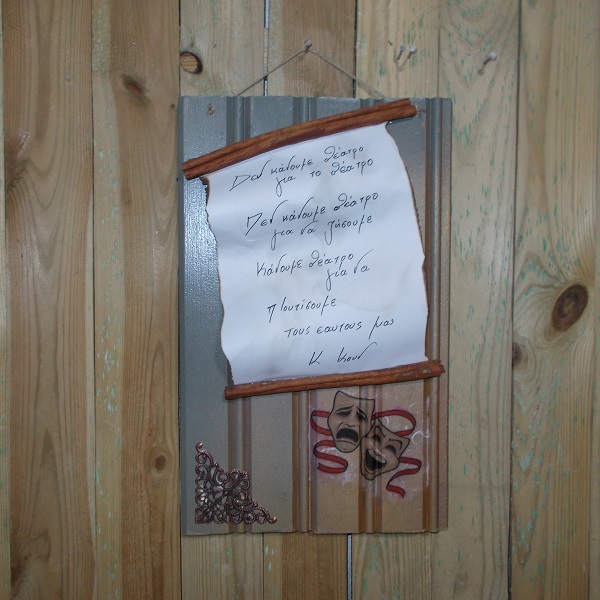 Δεν κάνουμε θέατρο
για το θέατρο
Δεν κάνουμε θέατρο
για να ζήσουμε
Κάνουμε θέατρο
για να
πλουτίσουμε
τους εαυτους μας
Κ. Κουν